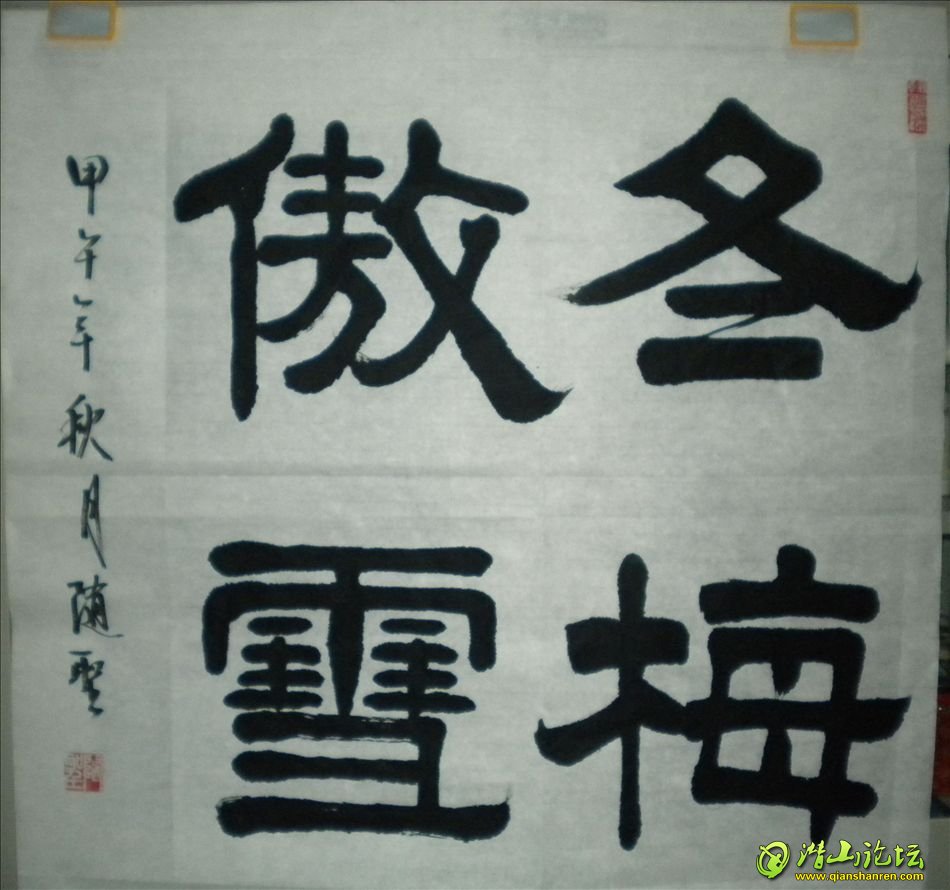 冬梅
傲雪
甲午年秋月随聖
潜山论坛
www.qianshanren.com